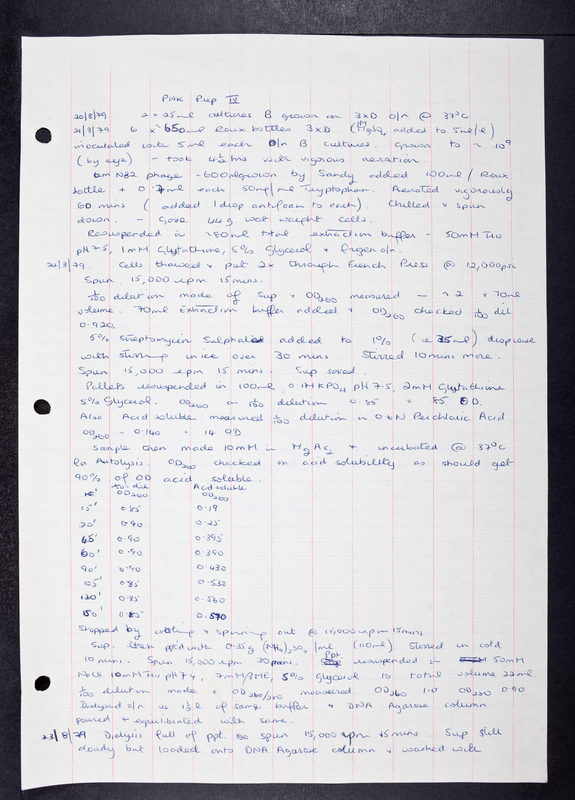 PNK Prep IV
20/8/79 2 x 25ml cultures B grown on 3xD o/n @ 37°c
21/8/79 6 x 650ml Roux bottles 3xD (MgSO4 added to 5ml/l)
inoculated with 5ml each o/n B cultures. Grown to ~ 10⁹
(by eye) - took 4½ hrs with vigorous aeration.
am N82 phage - 600 grown by Sandy added 100ml / Roux
bottle + 0.7ml each 50mg/ml Tryptophan. Aerated vigorously
60 mins (added 1 drop antifoam to each). Chilled + spun
down. - Gave 44g wet weight cells.
Resuspended in ~80ml total extraction buffer - 50mM Tris
pH 7.5, 1mM Glutathione, 5% Glycerol & frozen o/n.
22/8/79. Cells thawed & put 2x through French Press @ 12,000psi
Spun 15,000 rpm 15mins.
1/100 dilution made of Sup & OD260 measured - ~2 x 70ml
volume. 70ml Extraction buffer added & OD260 checked 1/100 dil
0.920.
5% Streptomycin Sulphate added to 1% (ie 35ml) dropwise
with stirring in ice over 30 mins. Stirred 10 mins more.
Spun 15,000 rpm 15 mins. Sup saved.
Pellets resuspended in 100ml 0.1M KPO4 pH 7.5, 2mM Glutathione
5% Glycerol. OD260 on 1/100 dilution 0.85 = 85 OD.
Also Acid soluble measured 1/100 dilution in 0.6N Perchloric Acid
OD260 - 0.140 = 14 OD
Sample then made 10mM in MgAc2 & incubated @ 37°C
for Autolysis. OD260 checked on acid solubility as should get
90% of OD acid soluble.
1/100 dil Acid soluble
OD260 OD260
15' 0.85 0.19
30' 0.90 0.25
45' 0.90 0.395
60' 0.90 0.390
90' 0.90 0.430
105' 0.85 0.530
120' 0.85 0.560
150' 0.85 0.570
Stopped by cooling & spinning out @ 15,000 rpm 15mins
Sup. then pptd with 0.35g (NH4)2SO4 /ml (110ml) Stirred in cold
10 mins. Spun 15,000 rpm 30mins. Ppt. resuspended in 50mM
NaCl 10mM Tris pH 7.4, 7mM βME, 5% glycerol to total volume 22ml
1/100 dilution made & OD260/280 measured. OD260 1.0 OD280 0.90
Dialysed o/n vs 1½l of same buffer & DNA Agarose column
poured & equilibrated with same.
23/8/79 Dialysis full of ppt so spun 15,000 rpm 15mins. Sup still
cloudy but loaded onto DNA Agarose column & washed with